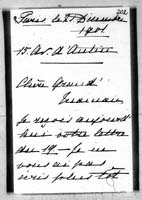 202
Paris le 21 Décembre
1901
15 Av. d'Antin
Chère Grand'
Maman
Je reçois aujourd
hui votre lettre
du 19 – Je ne
vous ai pas
écris plus tôt